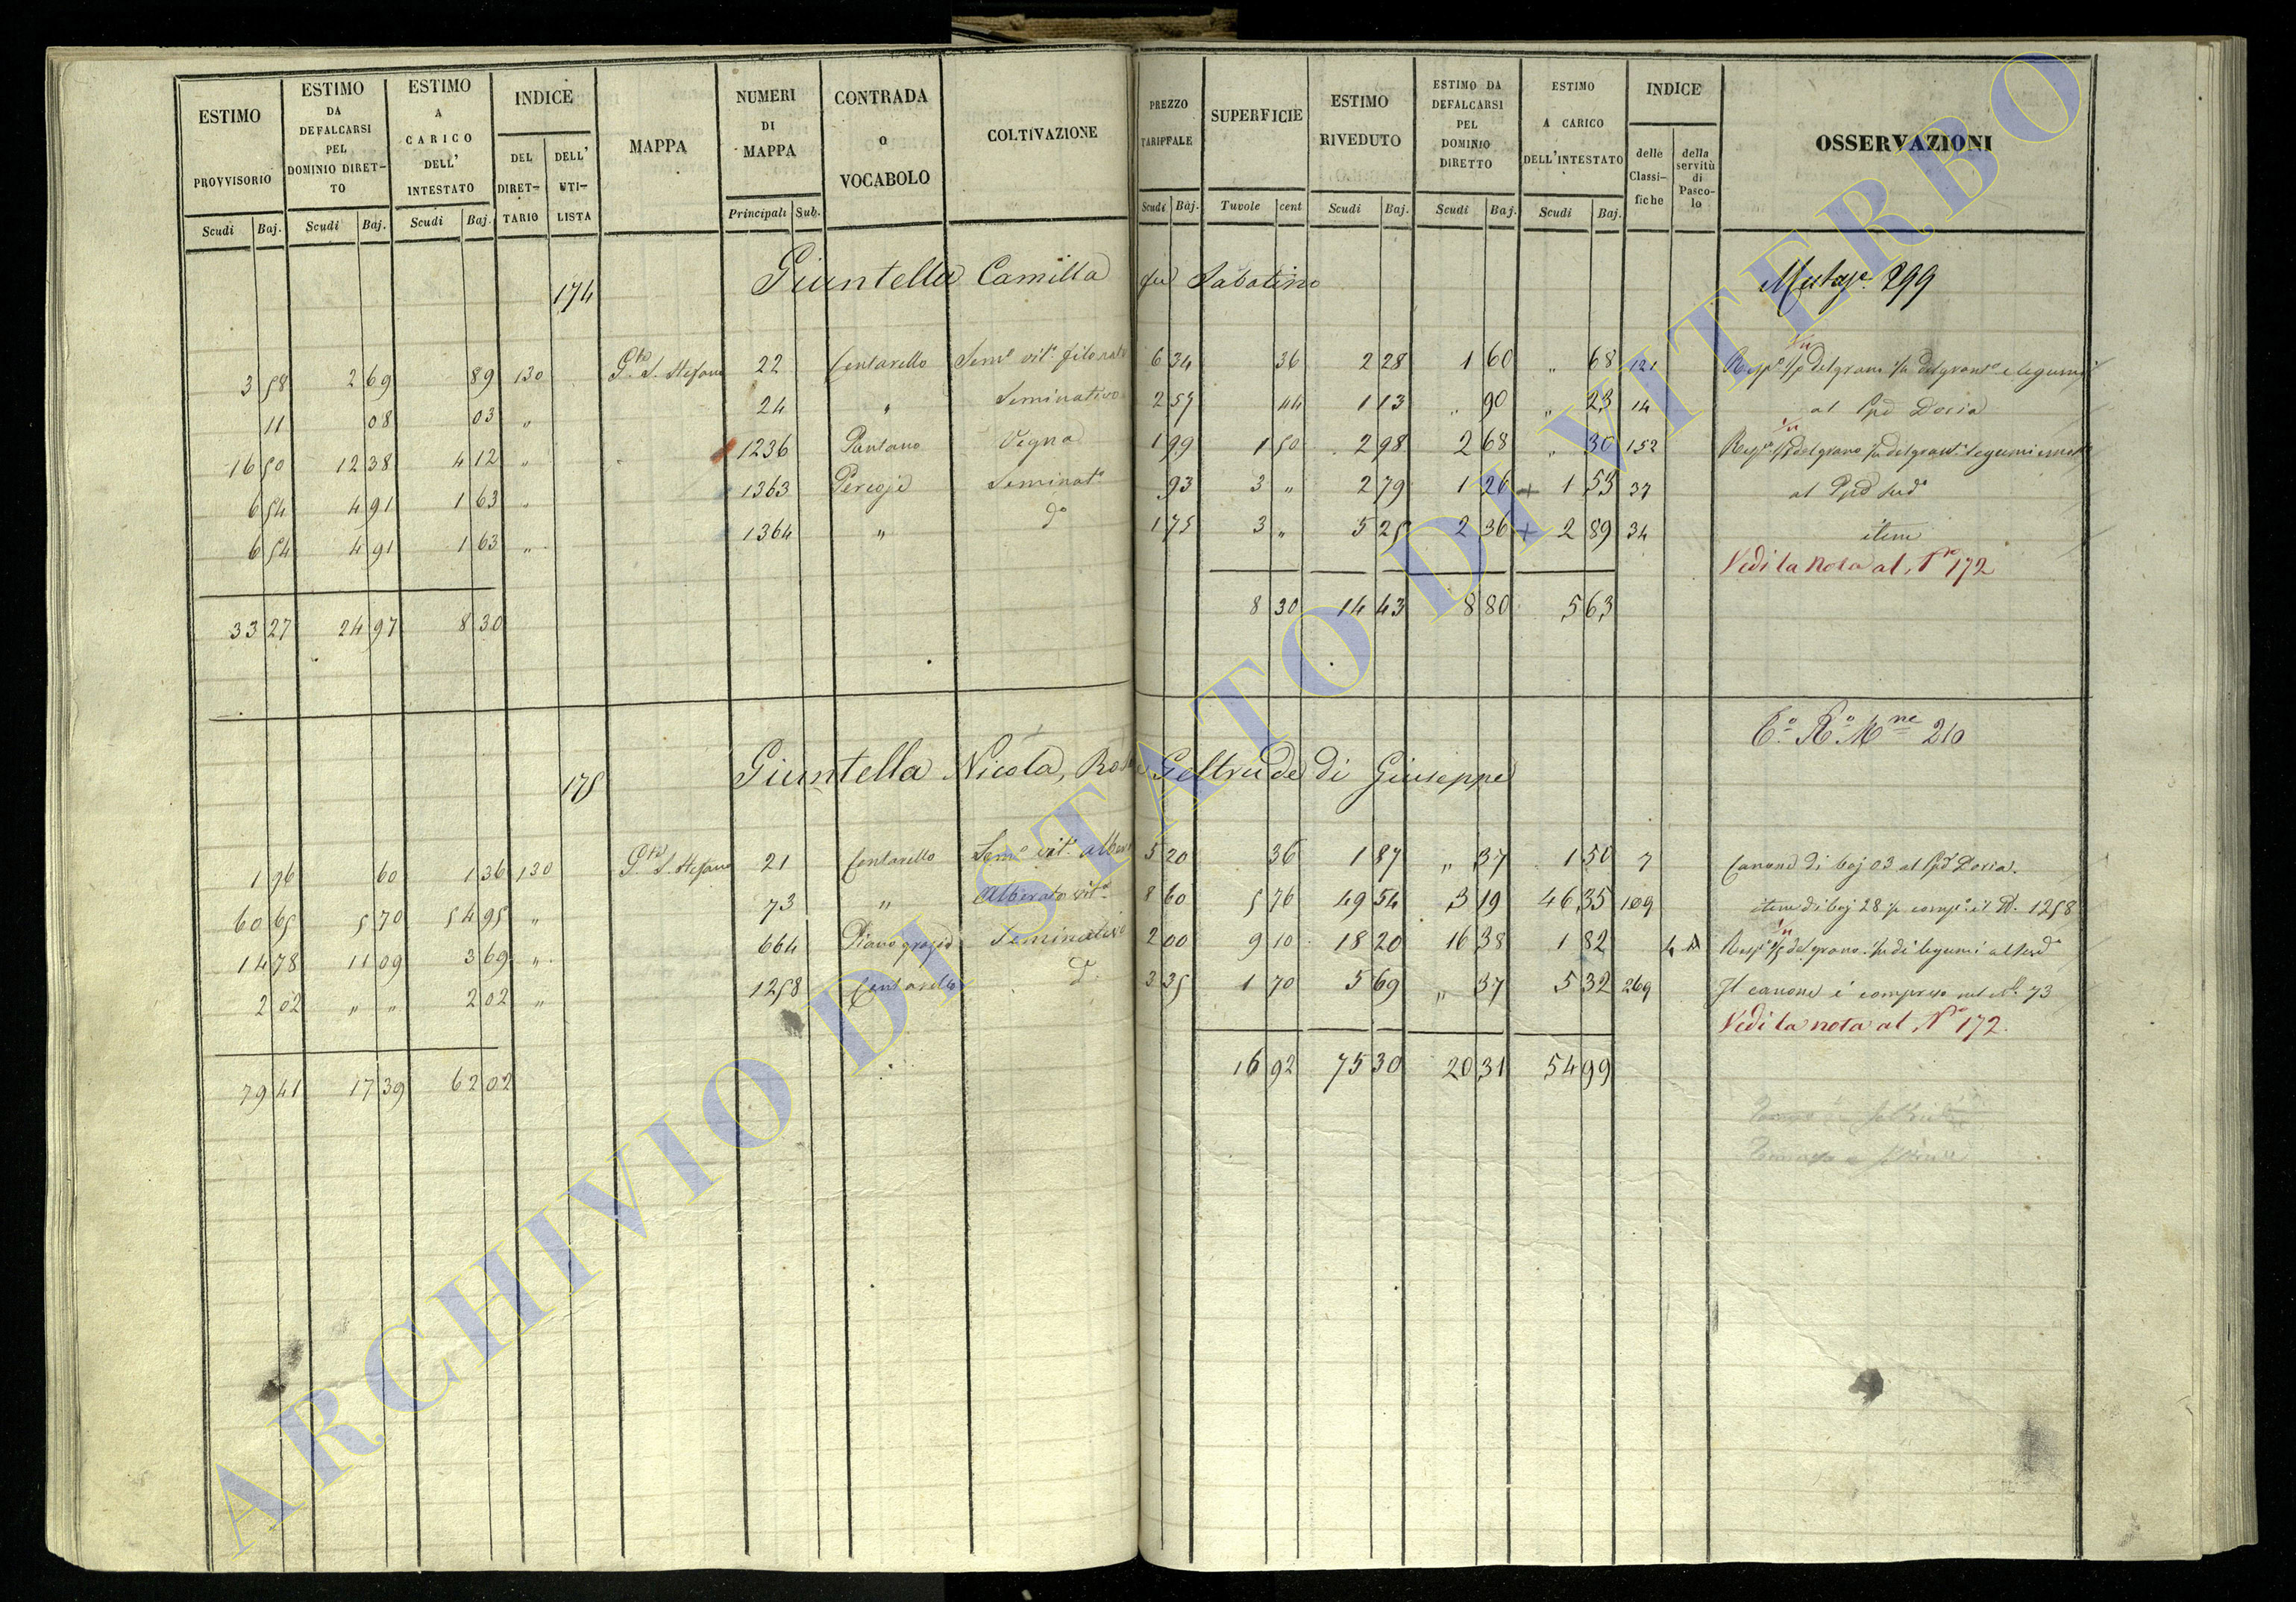 ESTIMO PROVVISORIO Scudi Baj.
ESTIMO DA DEFALCARSI PEL DOMINIO DIRET-TO Scudi Baj.
ESTIMO A CARICO DELL' INTESTATO Scudi Baj.
INDICE DEL DIRET-TARIO DELL' UTI-LISTA
MAPPA
NUMERI DI MAPPA Principali Sub.
CONTRADA o VOCABOLO
COLTIVAZIONE
PREZZO TARIFFALE Scudi Baj.
SUPERFICIE Tuvole cent
ESTIMO RIVEDUTO Scudi Baj.
ESTIMO DA DEFALCARSI PEL DOMINIO DIRETTO Scudi Baj.
ESTIMO A CARICO DELL'INTESTATO Scudi Baj.
INDICE delle Classi-fiche della servitù di Pasco-lo
OSSERVAZIONI
174 Giuntella Camilla fu Sabatino
299
3 58 2 69 89 130 S. Stefano 22 Centarello Sem° vit° filonato 6 34 36 2 28 1 60 „ 68 121
11 08 03 „ 24 „ Seminativo 2 57 44 1 13 „ 90 „ 23 14 al Doria
16 50 12 38 4 12 „ 1236 Pantano Vigna 1 99 1 50 2 98 2 68 „ 30 152
6 54 4 91 1 63 „ 1363 Seminat° 93 3 „ 2 79 1 26 + 1 53 37
6 54 4 91 1 63 „ 1364 „ d° 1 75 3 „ 5 25 2 36 + 2 89 34 item
Vedi la Nota al N° 172
33 27 24 97 8 30 8 30 14 43 8 80 5 63
210
175 Giuntella Nicola, Geltrude di Giuseppe
1 96 60 1 36 130 S. Stefano 21 Centarello Sem° vit° 5 20 36 1 87 „ 37 1 50 7 Canone di baj 03 al Doria.
60 65 5 70 54 95 „ 73 „ Alberato vit° 8 60 5 76 49 54 3 19 46 35 109 item di baj 28 1258
14 78 11 09 3 69 „ 664 Piano Seminativo 2 00 9 10 18 20 16 38 1 82
2 02 „ „ 2 02 „ 1258 Centarello d° 3 35 1 70 5 69 „ 37 5 32 269 Il canone è compreso nel N. 73
Vedi la nota al N° 172.
79 41 17 39 62 02 16 92 75 30 20 31 54 99
ARCHIVIO DI STATO DI VITERBO